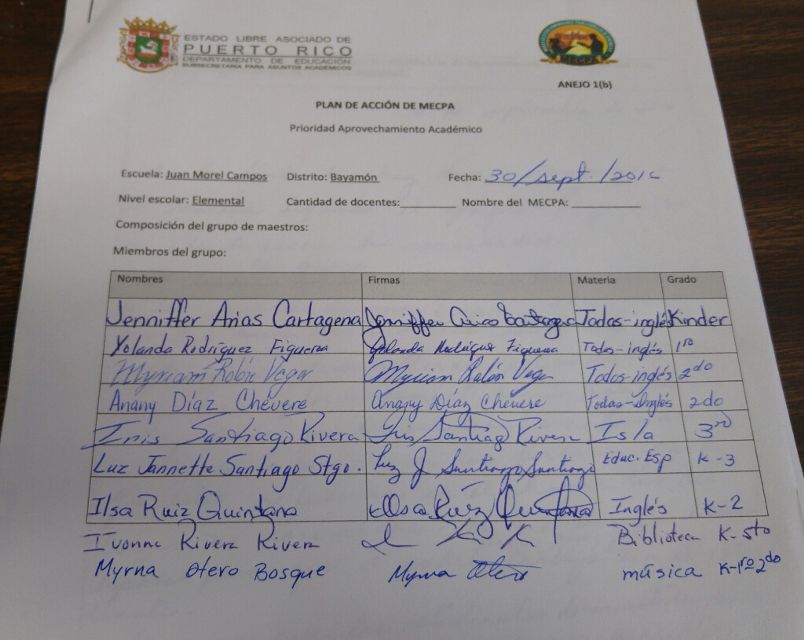 ESTADO LIBRE ASOCIADO DE
PUERTO RICO
DEPARTAMENTO DE EDUCACIÓN
SUBSECRETARIA PARA ASUNTOS ACADÉMICOS
MECPA
ANEJO 1(b)
PLAN DE ACCIÓN DE MECPA
Prioridad Aprovechamiento Académico
Escuela: Juan Morel Campos Distrito: Bayamón Fecha: 30/sept./2016
Nivel escolar: Elemental Cantidad de docentes:_________ Nombre del MECPA: ___________
Composición del grupo de maestros:
Miembros del grupo:
Nombres Firmas Materia Grado
Jenniffer Arias Cartagena Jenniffer Arias Cartagena Todas-inglés Kinder
Yolanda Rodríguez Figueroa Yolanda Rodríguez Figueroa Todas-inglés 1ro
Myriam Rolón Vega Myriam Rolón Vega Todas inglés 2do
Anany Díaz Chévere Anany Díaz Chévere Todas-Inglés 2do
Iris Santiago Rivera Iris Santiago Rivera Isla 3rd
Luz Jannette Santiago Stgo. Luz J Santiago Santiago Educ. Esp K-3
Ilsa Ruiz Quintana Ilsa Ruíz Quintana Inglés K-2
Ivonne Rivera Rivera Biblioteca K-5to
Myrna Otero Bosque Myrna Otero música K-1ro 2do